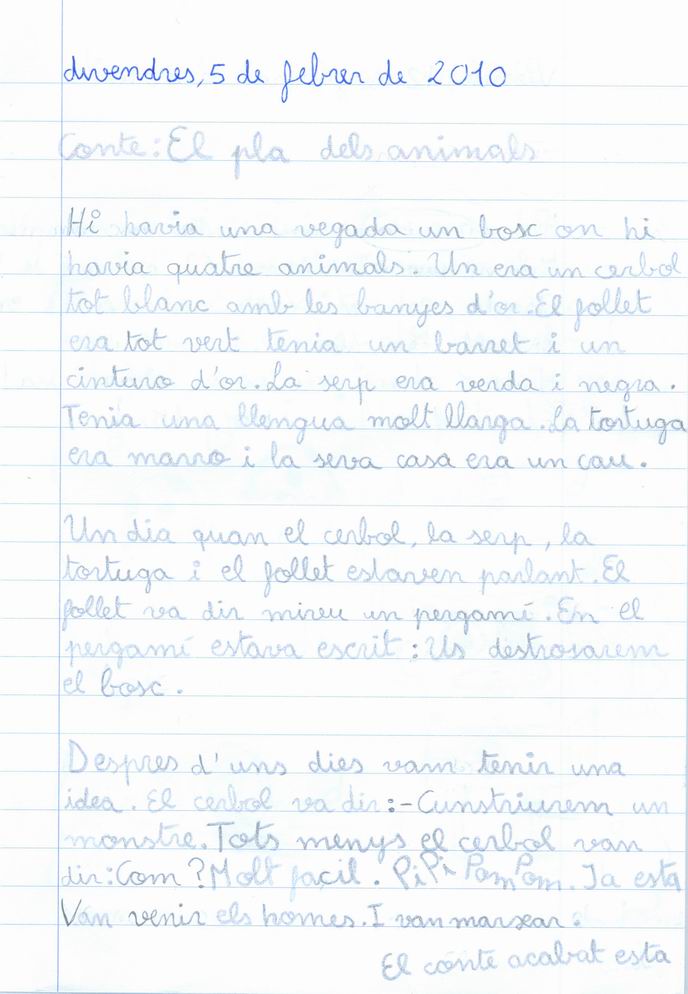 divendres, 5 de febrer de 2010
Conte: El pla dels animals
Hi havia una vegada un bosc on hi
havia quatre animals. Un era un cerbol
tot blanc amb les banyes d'or. El follet
era tot vert tenia un barret i un
cinturo d'or. La serp era verda i negra.
Tenia una llengua molt llarga. La tortuga
era marro i la seva casa era un cau.
Un dia quan el cerbol, la serp, la
tortuga i el follet estaven parlant. El
follet va dir mireu un pergamí. En el
pergamí estava escrit: Us destrosarem
el bosc.
Despres d'uns dies vam tenir una
idea. El cerbol va dir:-Cunstriurem un
monstre. Tots menys el cerbol van
dir: Com? Molt facil. Pi Pi Pom Pom. Ja esta
Van venir els homes. I van marxar.
El conte acabat esta